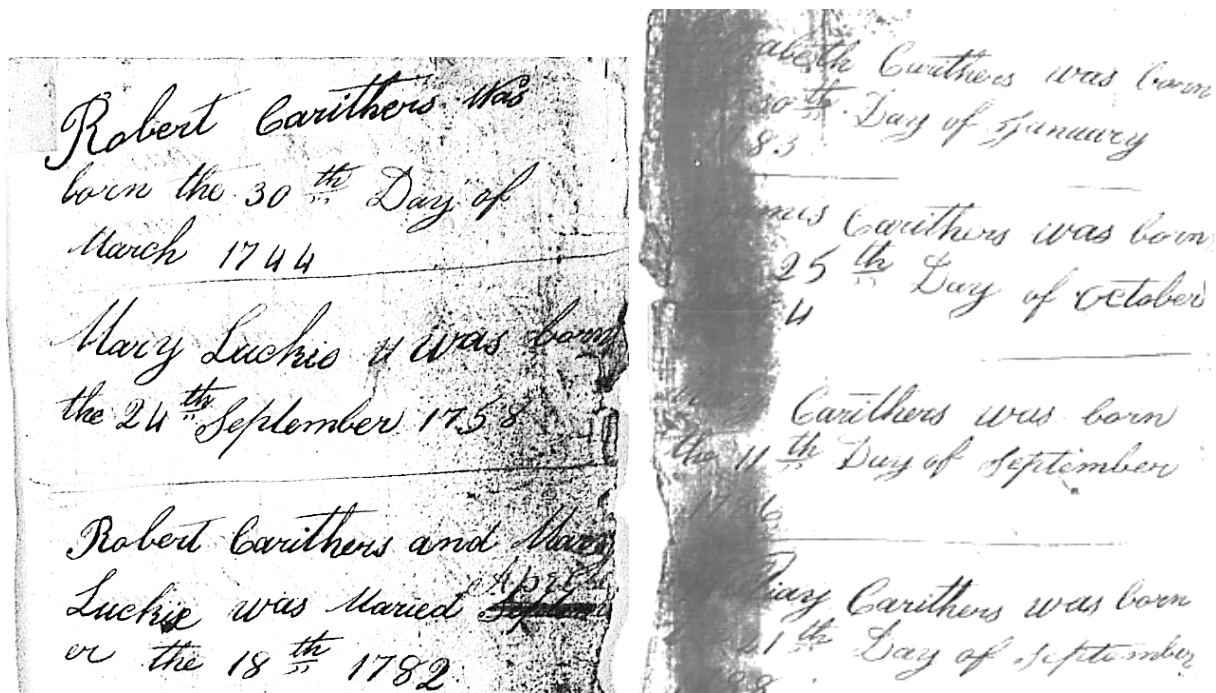 Robert Carithers was
born the 30th Day of
March 1744
Mary Luckie was born
the 24th September 1758
Robert Carithers and Mary
Luckie was Maried April
er the 18th 1782
abeth Carithers was born
30th Day of January
83
Carithers was born
25th Day of October
4
Carithers was born
the 11th Day of September
Carithers was born
21th Day of September